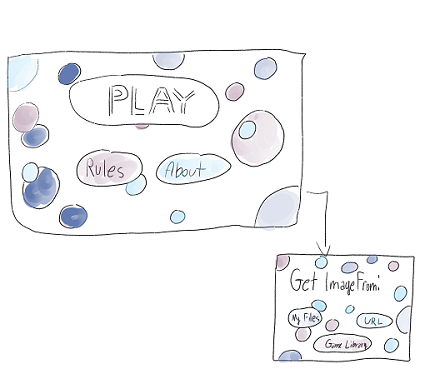 PLAY
Rules About
Get Image From:
My Files URL
Game Library